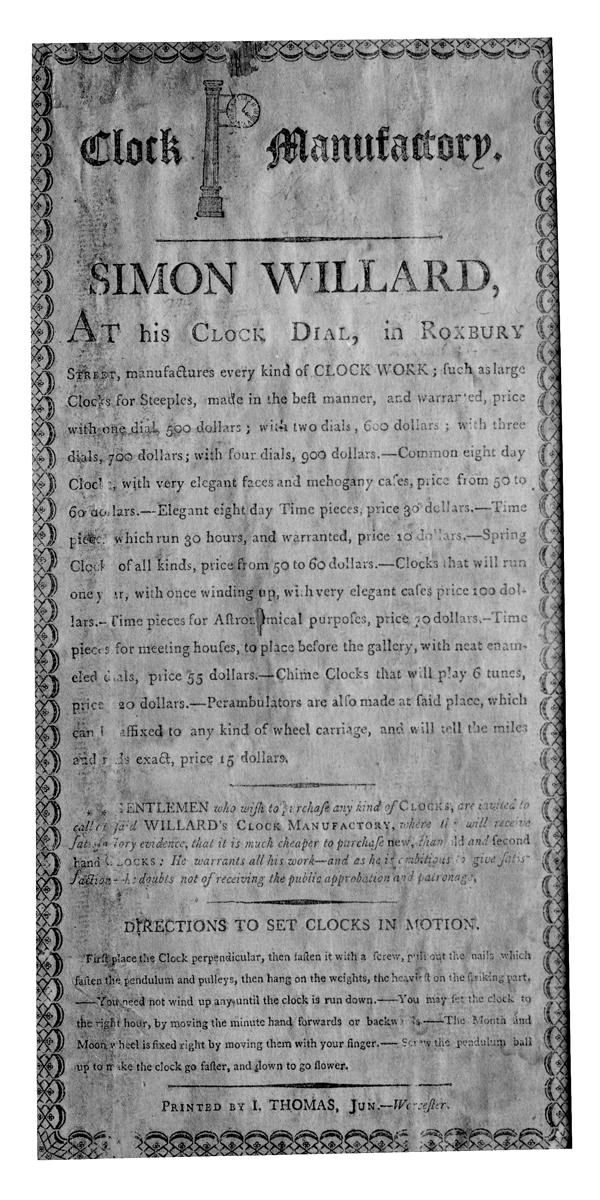 Clock Manufactory.
SIMON WILLARD,
AT his CLOCK DIAL, in ROXBURY
STREET, manufactures every kind of CLOCK WORK; ſuch as large
Clocks for Steeples, made in the beſt manner, and warranted, price
with one dial, 500 dollars; with two dials, 600 dollars; with three
dials, 700 dollars; with four dials, 900 dollars.—Common eight day
with very elegant faces and mehogany caſes, price from 50 to
60 dollars.—Elegant eight day Time pieces, price 30 dollars.—Time
pieces which run 30 hours, and warranted, price 10 dollars.—Spring
Clock of all kinds, price from 50 to 60 dollars.—Clocks that will run
one year, with once winding up, with very elegant caſes price 100 dol-
lars.—Time pieces for Aſtronomical purpoſes, price dollars.—Time
pieces for meeting houſes, to place before the gallery, with neat enam-
eled dials, price 55 dollars.—Chime Clocks that will play 6 tunes,
price 20 dollars.—Perambulators are alſo made at ſaid place, which
can affixed to any kind of wheel carriage, and will tell the miles
and exact, price 15 dollars.
GENTLEMEN who wiſh to purchaſe any kind of CLOCKS, are invited to
call at ſaid WILLARD's CLOCK MANUFACTORY, where they will receive
ſatisfactory evidence, that it is much cheaper to purchaſe new, than old and ſecond
hand CLOCKS: He warrants all his work—and as he is ambitious to give ſatis-
faction—he doubts not of receiving the public approbation and patronage.
DIRECTIONS TO SET CLOCKS IN MOTION.
Firſt place the Clock perpendicular, then faſten it with a ſcrew, pull out the nails which
faſten the pendulum and pulleys, then hang on the weights, the heavieſt on the ſtriking part.
——You need not wind up any until the clock is run down.——You may ſet the clock to
the right hour, by moving the minute hand forwards or backwards.——The Month and
Moon wheel is fixed right by moving them with your finger.—Screw the pendulum ball
up to make the clock go faſter, and down to go ſlower.
PRINTED BY I. THOMAS, JUN.—Worceſter.